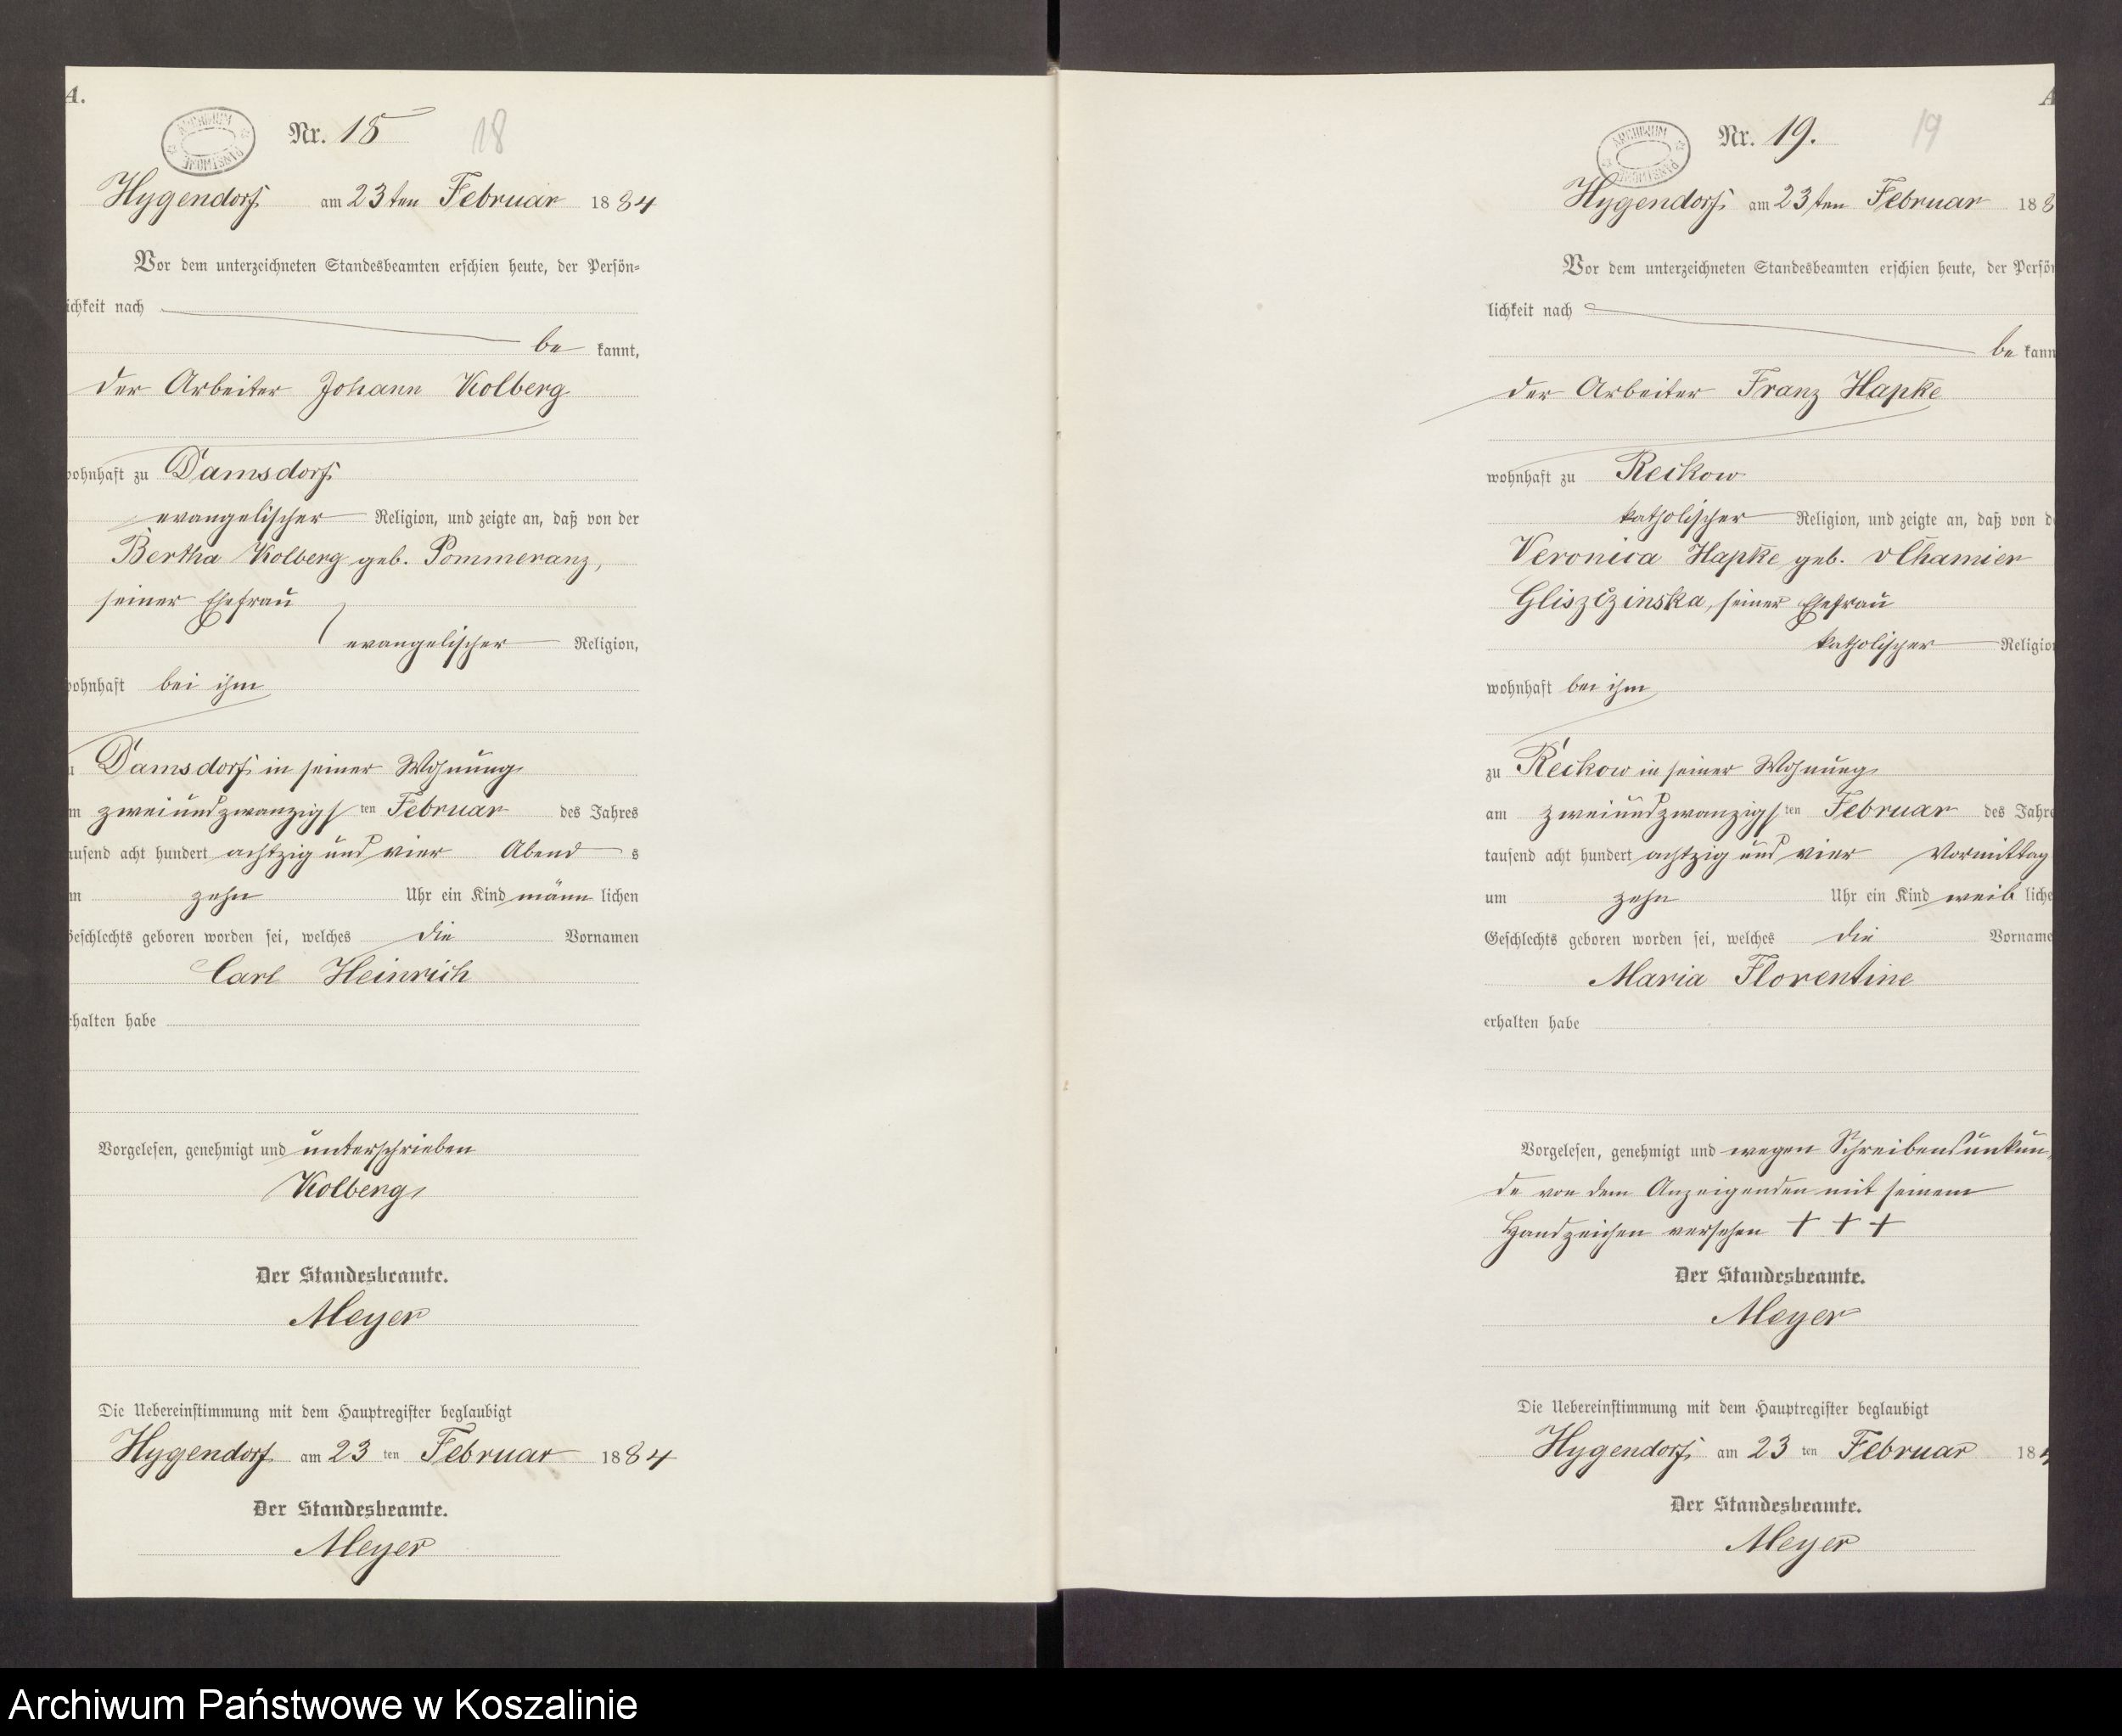 A.
Nr. 18
18
ARCHIWUM PAŃSTWOWE
Hygendorf am 23ten Februar 1884
Vor dem unterzeichneten Standesbeamten erschien heute, der Persön=
ichkeit nach
be kannt,
der Arbeiter Johann Kolberg
wohnhaft zu Damsdorf
evangelischer Religion, und zeigte an, daß von der
Bertha Kolberg geb. Pommeranz,
seiner Ehefrau
evangelischer Religion,
wohnhaft bei ihm
Damsdorf in seiner Wohnung
m zweiundzwanzigsten Februar des Jahres
ausend acht hundert achtzig und vier Abend s
m zehn Uhr ein Kind männ lichen
Geschlechts geboren worden sei, welches die Vornamen
Carl Heinrich
rhalten habe
Vorgelesen, genehmigt und unterschrieben
Kolberg
Der Standesbeamte.
Meyer
Die Uebereinstimmung mit dem Hauptregister beglaubigt
Hygendorf am 23 ten Februar 1884
Der Standesbeamte.
Meyer
A
Nr. 19.
19
ARCHIWUM PAŃSTWOWE
Hygendorf am 23ten Februar 188
Vor dem unterzeichneten Standesbeamten erschien heute, der Persön
lichkeit nach
be kann
der Arbeiter Franz Hapke
wohnhaft zu Reckow
katholischer Religion, und zeigte an, daß von d
Veronica Hapke geb. v Chamier
Gliszczinska, seiner Ehefrau
katholischer Religion
wohnhaft bei ihm
zu Reckow in seiner Wohnung
am zweiundzwanzigsten Februar des Jahre
tausend acht hundert achtzig und vier Vormittag
um zehn Uhr ein Kind weib liche
Geschlechts geboren worden sei, welches die Vorname
Maria Florentine
erhalten habe
Vorgelesen, genehmigt und wegen Schreibensunkun=
de von dem Anzeigenden mit seinem
Handzeichen versehen + + +
Der Standesbeamte.
Meyer
Die Uebereinstimmung mit dem Hauptregister beglaubigt
Hygendorf am 23 ten Februar 18
Der Standesbeamte.
Meyer
Archiwum Państwowe w Koszalinie